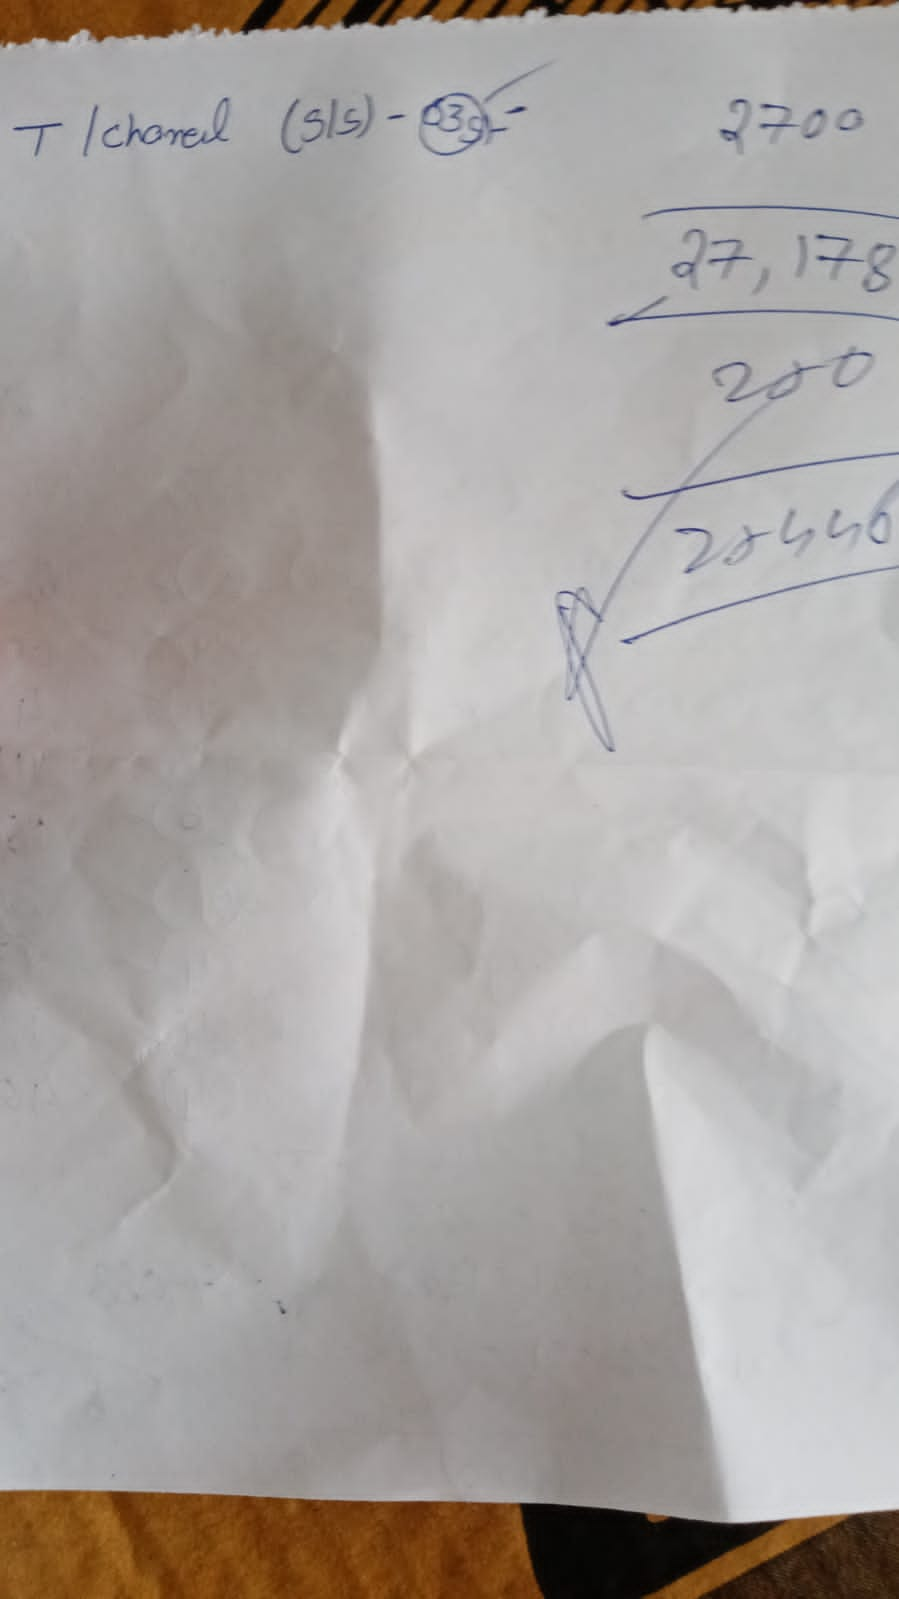 T/chanel (S/S) - 03s/- 2700
27,178
200
20446